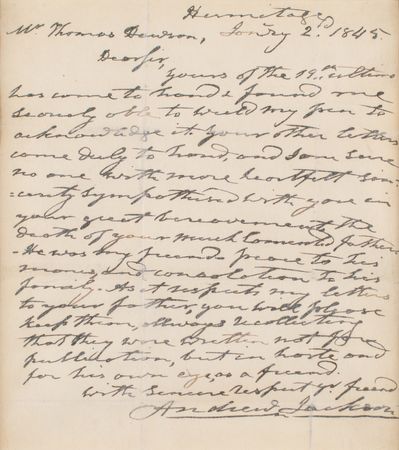 Hermitage
Mr. Thomas Dawson, Janry 2. 1845.
Dear sir,
yours of the 19th ultimo
has come to hand & found me
scarcely able to wield my pen to
acknowledge it. Your other letters
come duly to hand, and I am sure
no one with more heartfelt sin-
-cerity sympathised with you in
your great bereavement, the
death of your much lamented father
He was my friend - peace to his
manes, and consolation to his
family. As it respects my letters
to your father, you will please
keep them, always recollecting
that they were written not for
publication, but in haste and
for his own eye, as a friend.
with sincere respect yr friend
Andrew Jackson